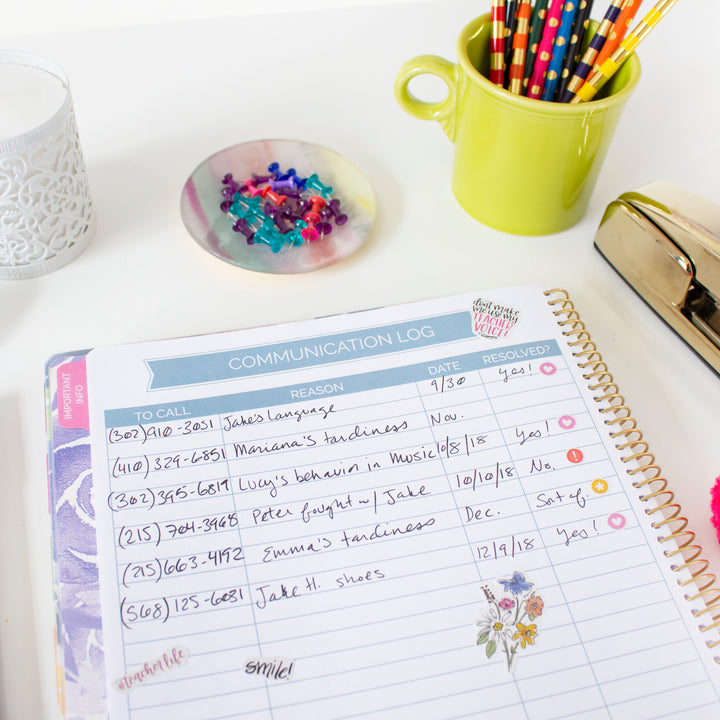 don't make
me use my
TEACHER
VOICE!
COMMUNICATION LOG
IMPORTANT
INFO
TO CALL REASON DATE RESOLVED?
(302)910-3051 Jake's Language 9/30 yes!
(410) 329-6851 Mariana's tardiness Nov.
(302)395-6819 Lucy's behavior in Music 10/8/18 Yes!
(215) 704-3968 Peter fought w/ Jake 10/10/18 No.
(215)663-4192 Emma's tardiness Dec. Sort of.
(568) 125-6031 Jake H. shoes 12/9/18 yes!
#teacherlife smile!